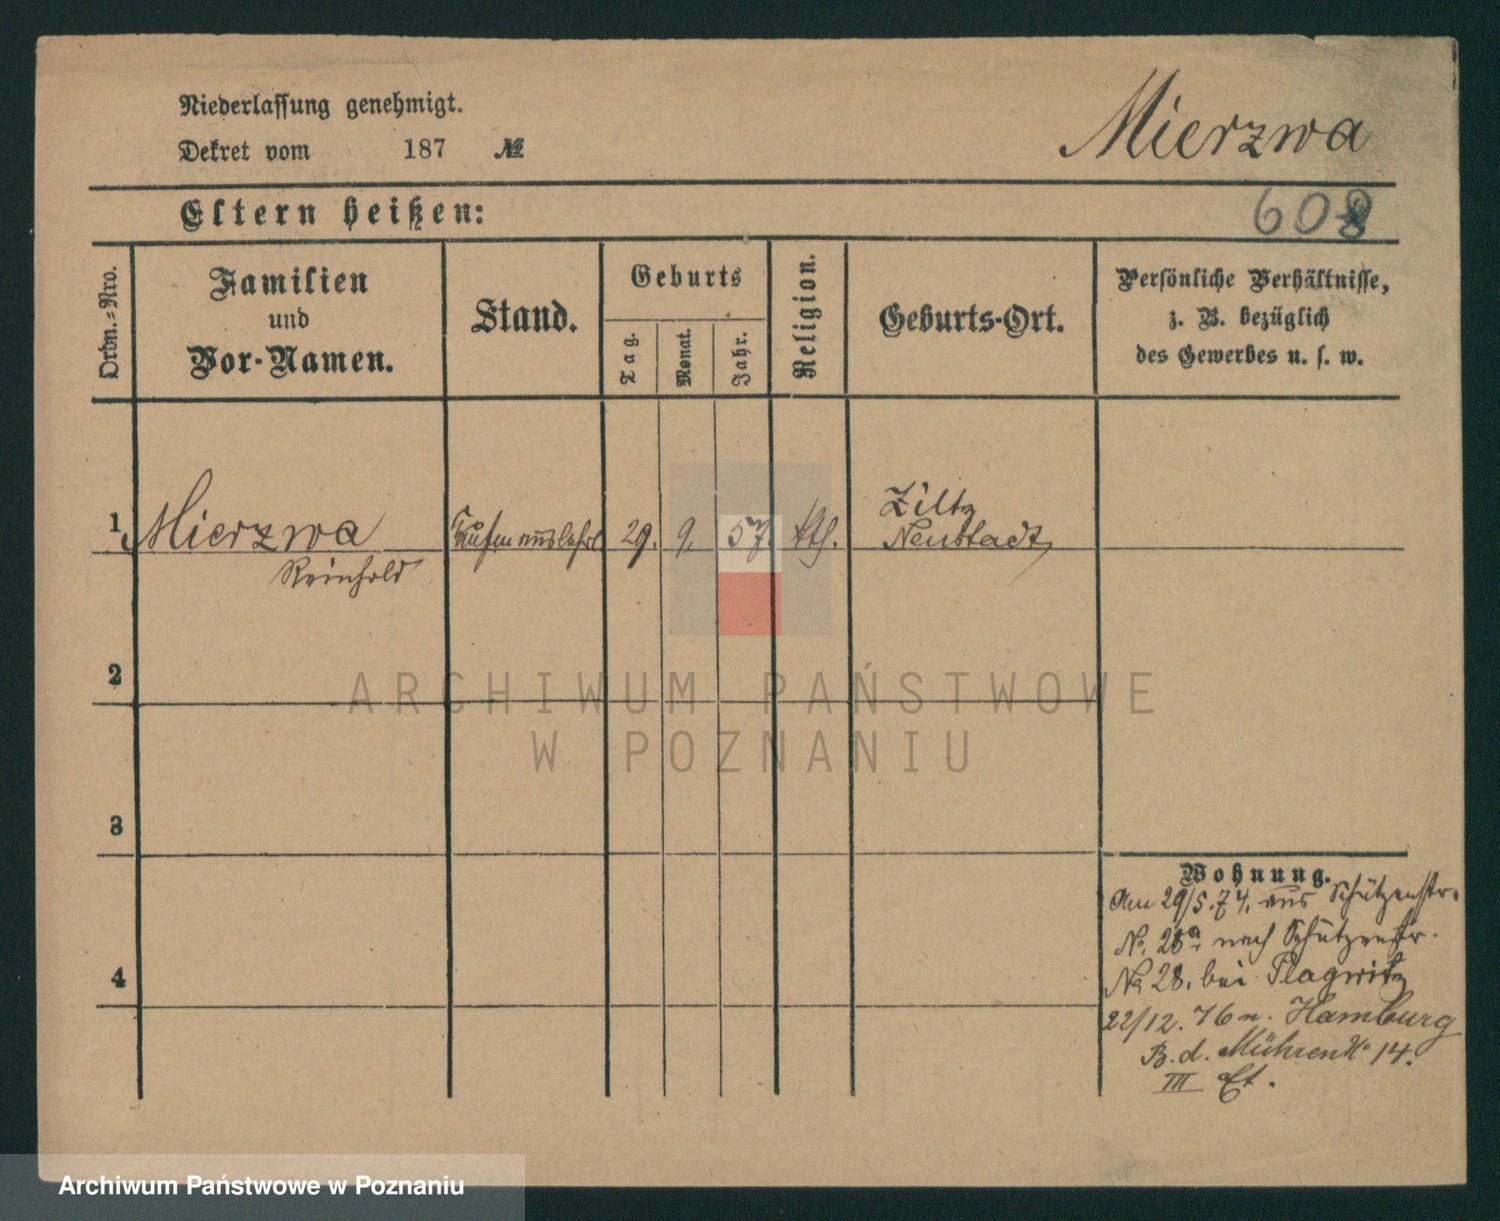 Niederlassung genehmigt.
Dekret vom 187 №
Mierzwa
Eltern heißen:
608
Ordn.-Nro.
Familien
und
Vor-Namen.
Stand.
Geburts
Tag.
Monat.
Jahr.
Religion.
Geburts-Ort.
Persönliche Verhältnisse,
z. B. bezüglich
des Gewerbes u. s. w.
1 Mierzwa 29. 9. 57 kth.
Reinhold
Ziltz
Neustadt
2
3
4
Wohnung.
Am 29/5.74. aus Schützenstr.
No. 28a nach Schützenstr.
No 28. bei Plagwitz
22/12.76 n. Hamburg
B. d. Mühren No 14.
III Et.
ARCHIWUM PAŃSTWOWE
W POZNANIU
Archiwum Państwowe w Poznaniu